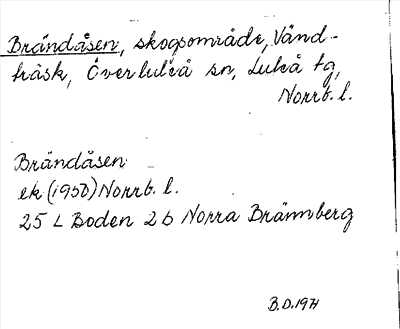 Brändåsen, skogsområde, Vänd-
träsk, Överluleå sn, Luleå tg,
Norrb. l.
Brändåsen
ek (1950) Norrb. l.
25 L Boden 2 b Norra Brännberg
B.D. 1971